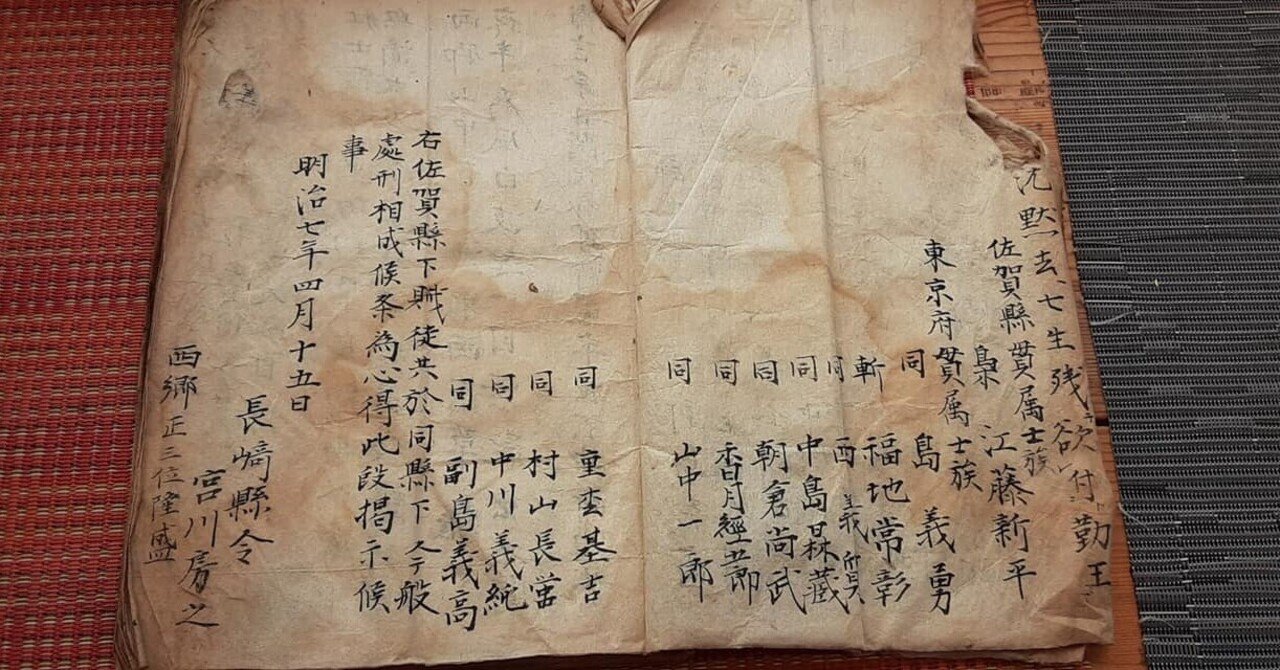 沈黙去、七生残欲付勤王
佐賀縣貫属士族
梟 江藤新平
東京府貫属士族
同 島義勇
斬 福地常彰
同 西義
同 中島鼎藏
同 朝倉尚武
同 香月經五郎
同 山中一郎
同 重基吉
同 村山長
同 中川義純
同 副島義高
右佐賀縣下賊徒共於同縣下今般
處刑相成候条為心得此段掲示候
事
明治七年四月十五日
長崎縣令
宮川房之
西郷正三位隆盛